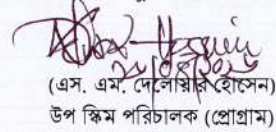 (এস. এম. দেলোয়ার হোসেন)
উপ স্কিম পরিচালক (প্রোগ্রাম)